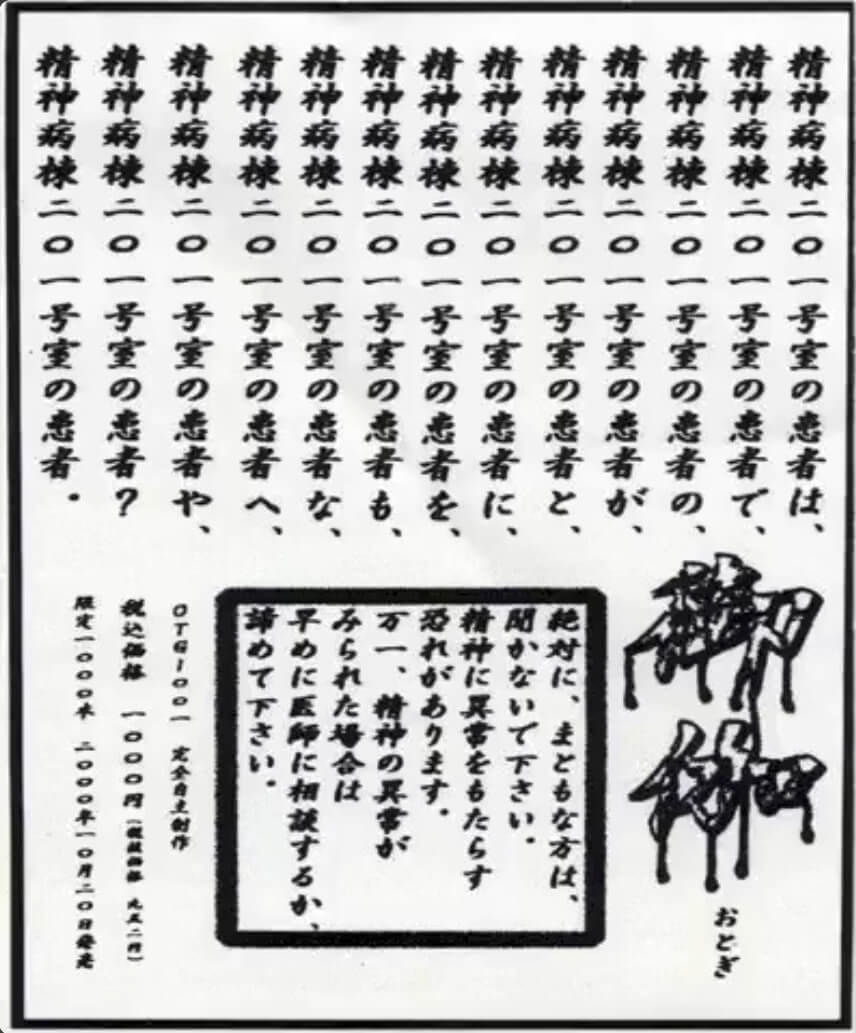 精神病棟二〇一号室の患者は、
精神病棟二〇一号室の患者で、
精神病棟二〇一号室の患者の、
精神病棟二〇一号室の患者が、
精神病棟二〇一号室の患者と、
精神病棟二〇一号室の患者に、
精神病棟二〇一号室の患者を、
精神病棟二〇一号室の患者も、
精神病棟二〇一号室の患者な、
精神病棟二〇一号室の患者へ、
精神病棟二〇一号室の患者や、
精神病棟二〇一号室の患者?
精神病棟二〇一号室の患者。
御伽
おとぎ
絶対に、まともな方は、
聞かないで下さい。
精神に異常をもたらす
恐れがあります。
万一、精神の異常が
みられた場合は
早めに医師に相談するか、
諦めて下さい。
OTG1001 完全自主制作
税込価格 一〇〇〇円(税抜価格 九五二円)
限定一〇〇〇本 二〇〇〇年一〇月二〇日発売